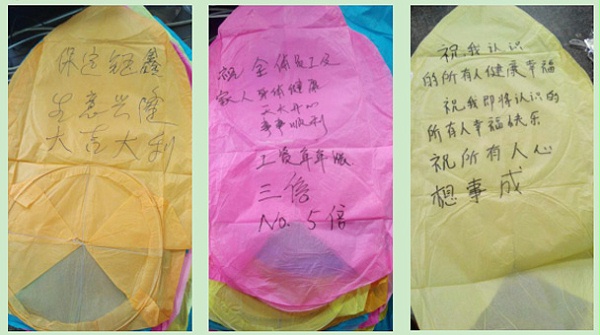 保定钜鑫
生意兴隆
大吉大利
祝 全体员工及
家人 身体健康
天天开心
事事顺利
工资年年涨
三倍
No. 5倍
祝,我认识
的所有人健康幸福
祝我即将认识的
所有人幸福快乐
祝所有人心
想事成